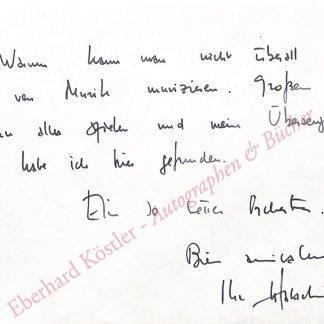 Warum kann man nicht überall
von Musik musizieren. Großen
alles spielen und mein Überzeug
habe ich hier gefunden.
Ein so
Bien amicalem
Ihr
Eberhard Köstler - Autographen & Bücher